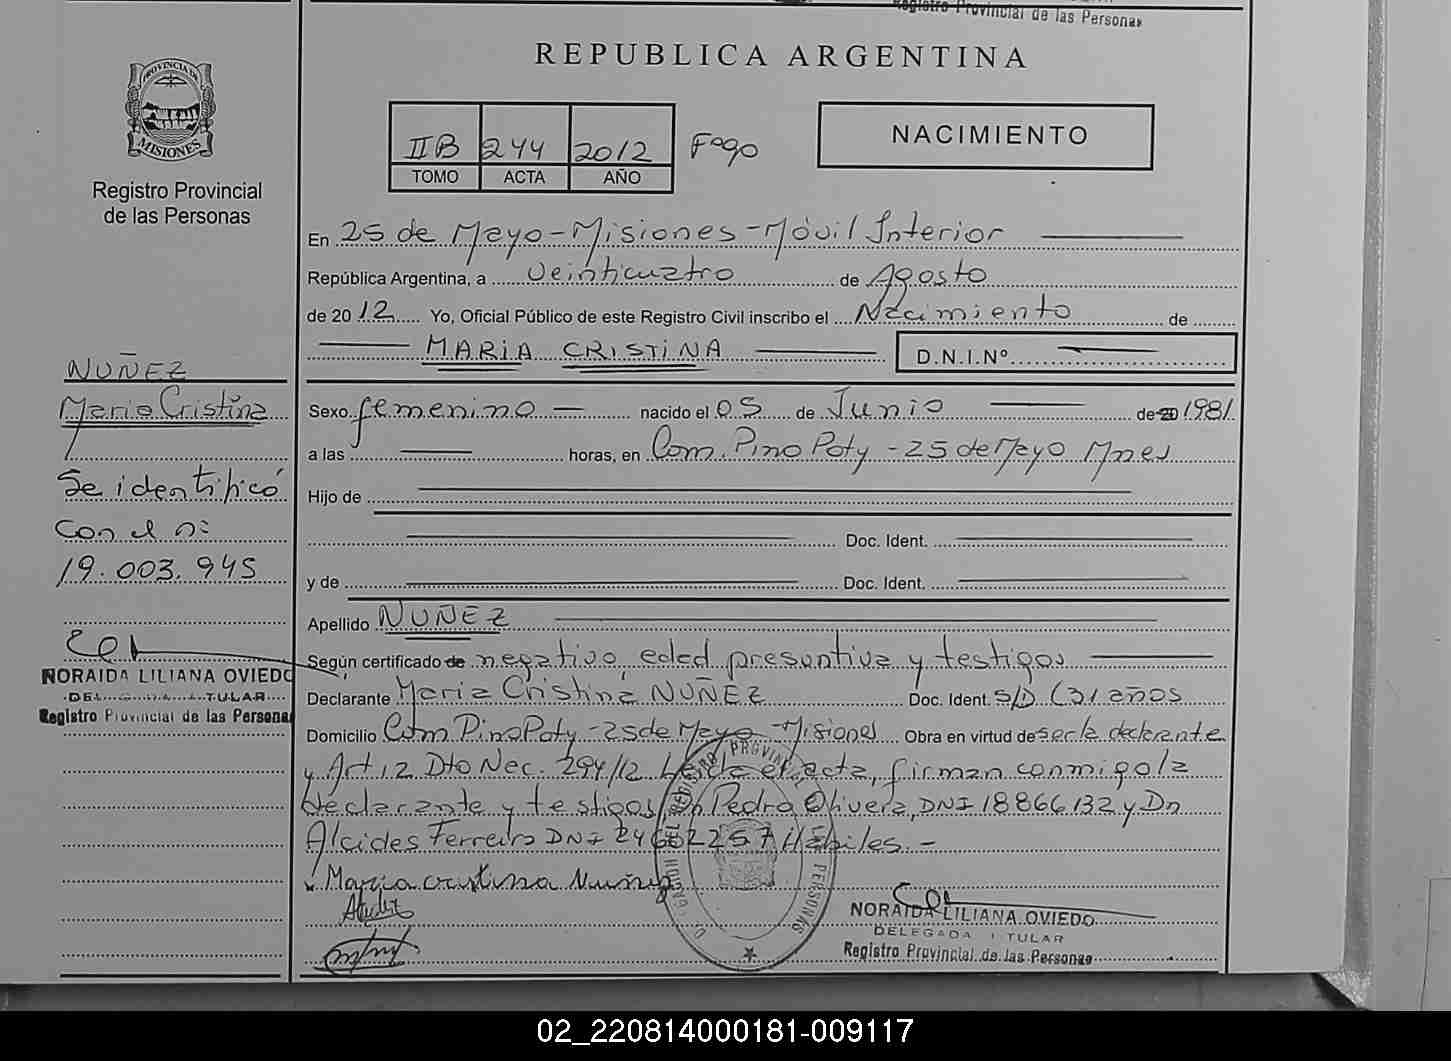 Registro Provincial de las Personas
REPUBLICA ARGENTINA
PROVINCIA DE
MISIONES
Registro Provincial
de las Personas
II B 244 2012 Fogo
TOMO ACTA AÑO
NACIMIENTO
En 25 de Mayo - Misiones - Móvil Interior
República Argentina, a Veinticuatro de Agosto
de 20 12 Yo, Oficial Público de este Registro Civil inscribo el Nacimiento de
MARIA CRISTINA D.N.I.Nº
NUÑEZ
Maria Cristina
Se identificó
con el nº
19.003.945
NORAIDA LILIANA OVIEDO
DELEGADA TITULAR
Registro Provincial de las Personas
Sexo femenino nacido el 05 de Junio de 20 1981
a las horas, en Com. Pino Poty - 25 de Mayo Mnes
Hijo de
Doc. Ident.
y de Doc. Ident.
Apellido NUÑEZ
Según certificado de negativo, edad presuntiva y testigos
Declarante Maria Cristina NUÑEZ Doc. Ident. S/D (31 años
Domicilio Com Pino Poty - 25 de Mayo - Misiones Obra en virtud de ser la declarante
y Art 12 Dto Nec. 294/12 Leída el acta, firman conmigo la
declarante y testigos Dn Pedro Olivera, DNI 18866132 y Dn
Alcides Ferreira DNI 24602257 Hábiles. -
Maria cristina Nuñez
NORAIDA LILIANA OVIEDO
DELEGADA TITULAR
Registro Provincial de las Personas
02_220814000181-009117